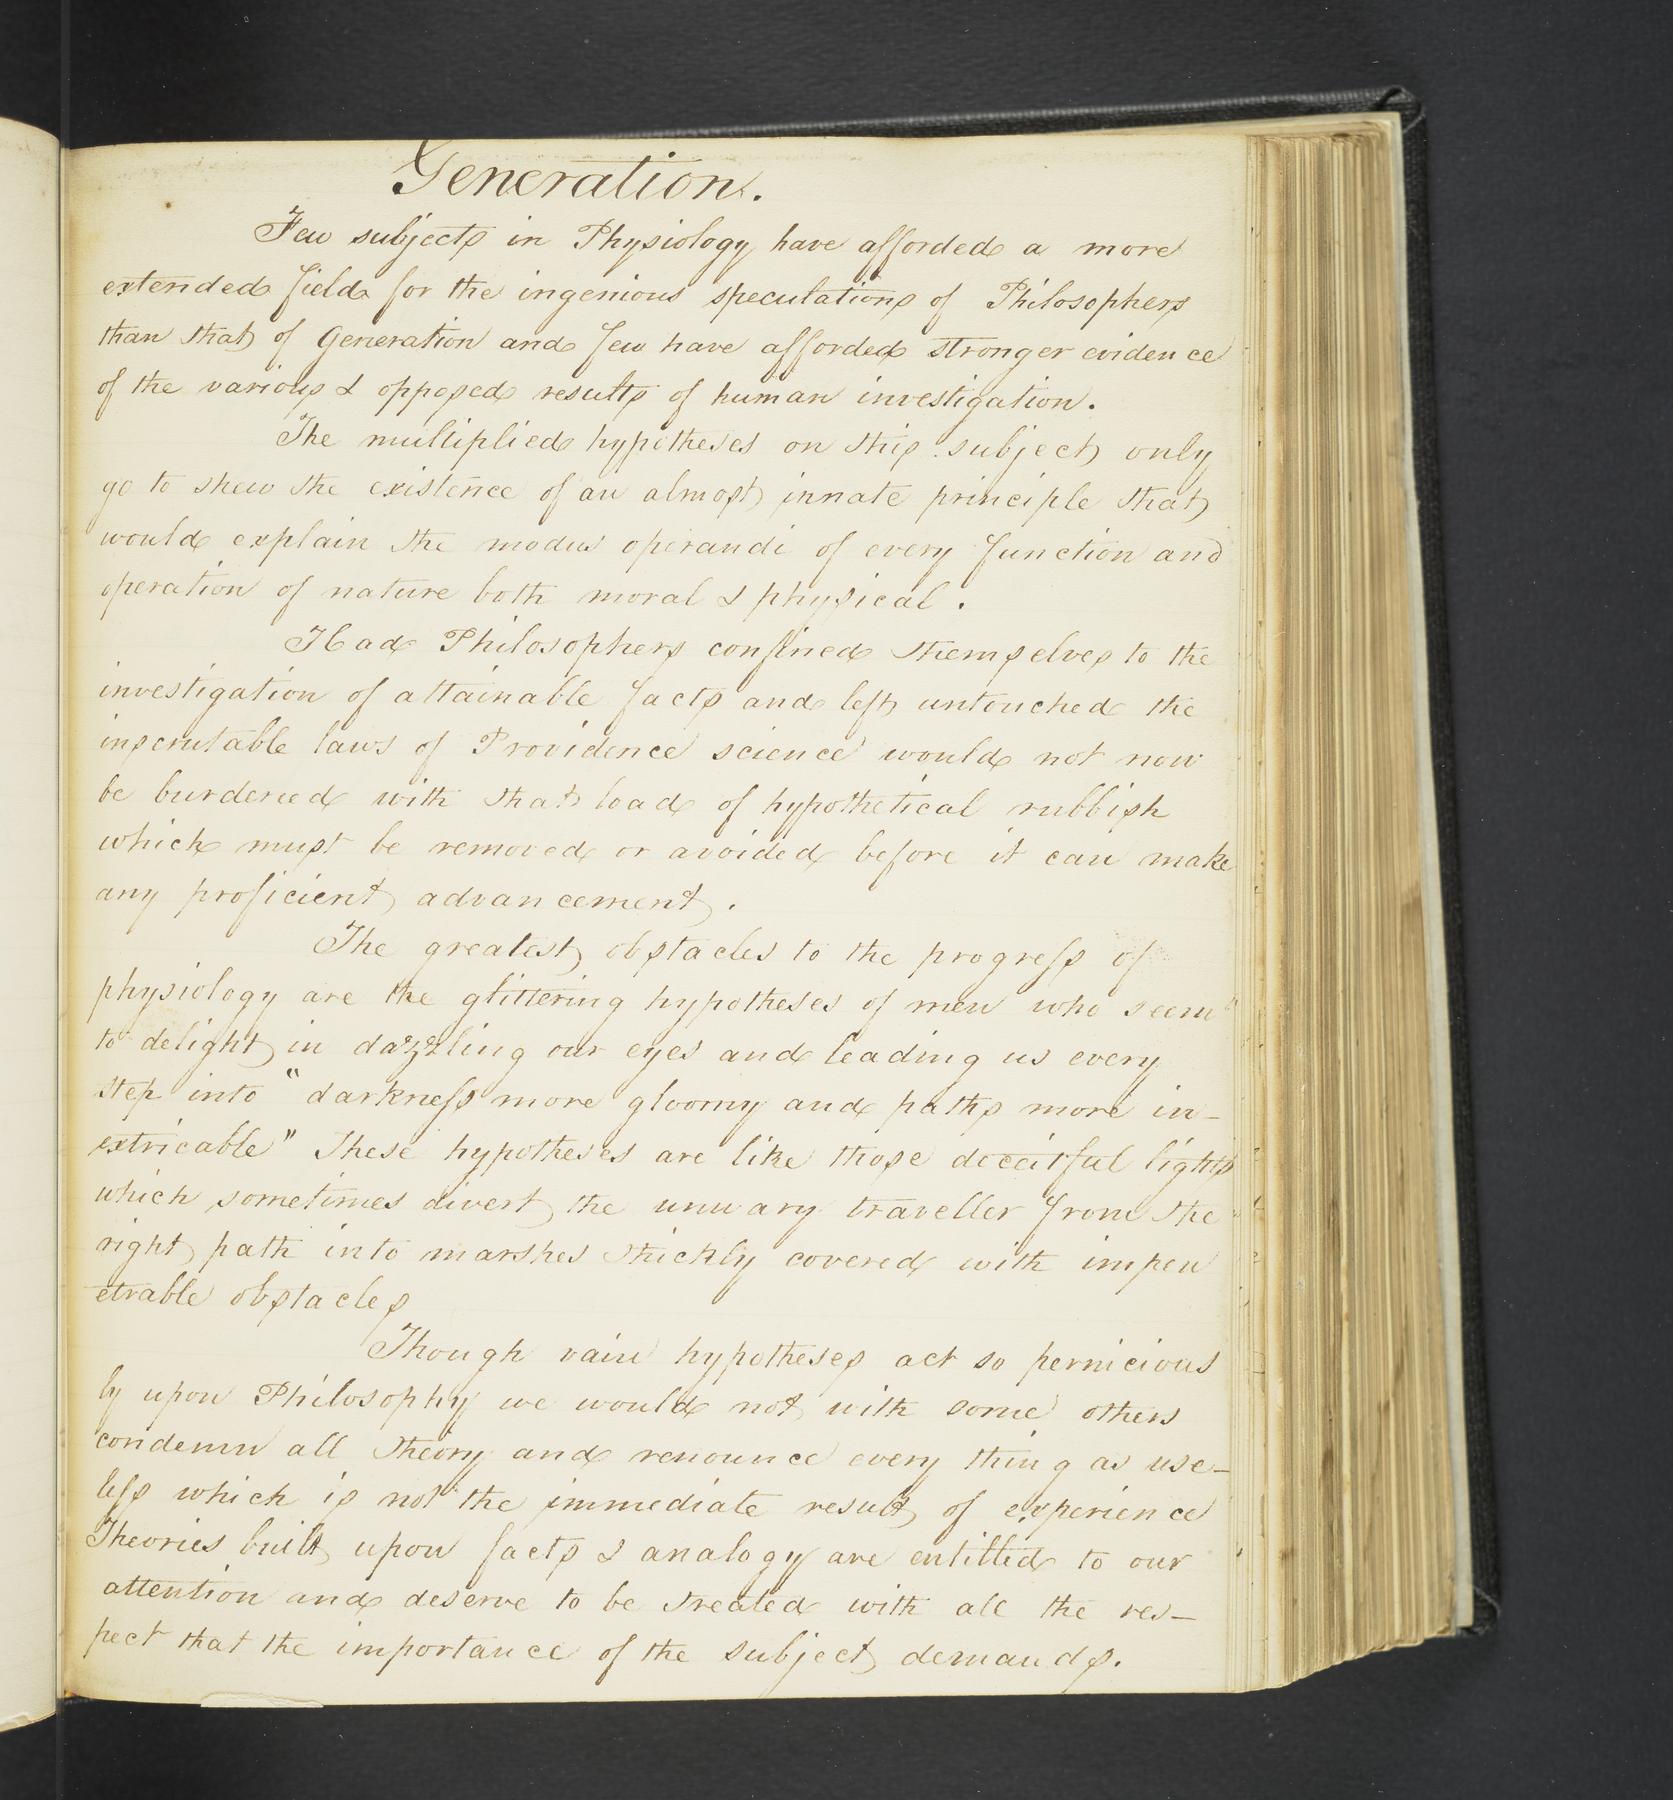 Generation.
Few subjects in Physiology have afforded a more
extended field for the ingenious speculations of Philosophers
than that of Generation and few have afforded stronger evidence
of the various & opposed results of human investigation.
The multiplied hypotheses on this subject only
go to shew the existence of an almost innate principle that
would explain the modus operandi of every function and
operation of nature both moral & physical.
Had Philosophers confined themselves to the
investigation of attainable facts and left untouched the
inscrutable laws of Providence science would not now
be burdened with that load of hypothetical rubbish
which must be removed or avoided before it can make
any proficient advancement.
The greatest obstacles to the progress of
physiology are the glittering hypotheses of men who seem
to delight in dazzling our eyes and leading us every
step into "darkness more gloomy and paths more in-
extricable" These hypotheses are like those deceitful lights
which sometimes divert the unwary traveller from the
right path into marshes thickly covered with impen
etrable obstacles
Though vain hypotheses act so pernicious
ly upon Philosophy we would not with some others
condemn all theory and renounce every thing as use-
less which is not the immediate result of experience
Theories built upon facts & analogy are entitled to our
attention and deserve to be treated with all the res-
pect that the importance of the subject demands.